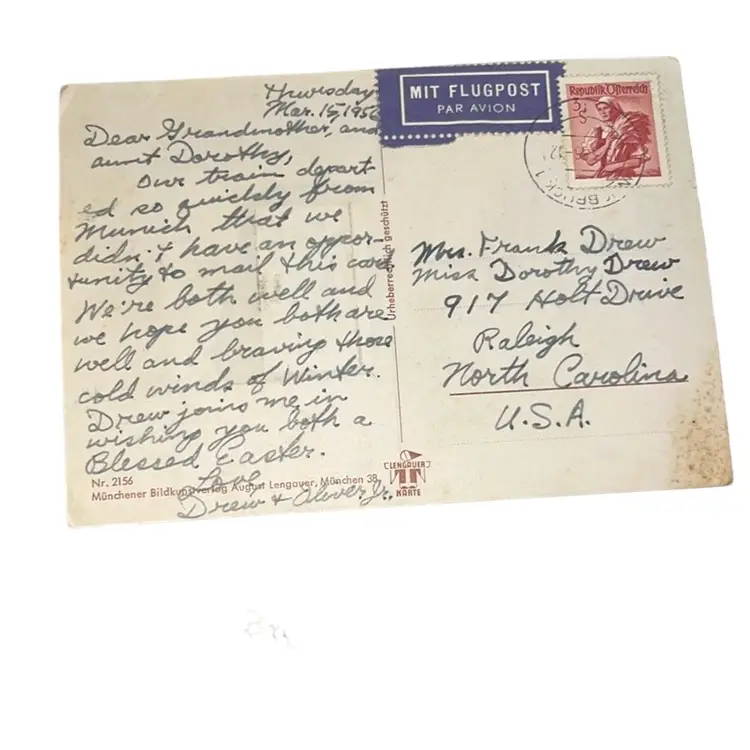 Thursday
Mar. 15, 1956
Dear Grandmother, and
aunt Dorothy,
Our train depart-
ed so quickly from
Munich that we
didn't have an oppor-
tunity to mail this card
We're both well and
we hope you both are
well and braving those
cold winds of Winter.
Drew joins me in
wishing you both a
Blessed Easter.
Love
Drew + Oliver Jr.
Nr. 2156
Münchener Bildkunstverlag August Lengauer, München 38
Urheberrechtlich geschützt
LENGAUER
KARTE
MIT FLUGPOST
PAR AVION
Republik Österreich
3
S
BRUCK 1
Mrs. Frank Drew
Miss Dorothy Drew
917 Holt Drive
Raleigh
North Carolina
U.S.A.